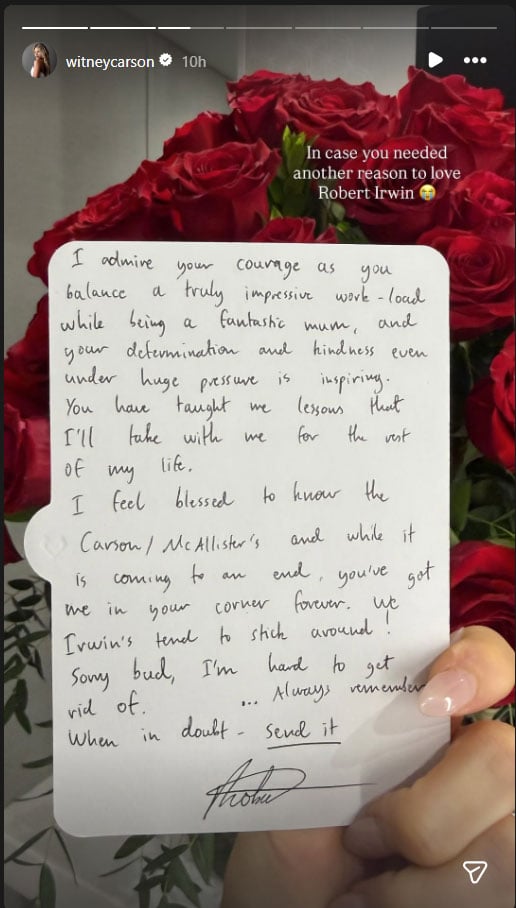 witneycarson 10h
In case you needed
another reason to love
Robert Irwin 😭
I admire your courage as you
balance a truly impressive work-load
while being a fantastic mum, and
your determination and kindness even
under huge pressure is inspiring.
You have taught me lessons that
I'll take with me for the rest
of my life.
I feel blessed to know the
Carson/McAllister's and while it
is coming to an end, you've got
me in your corner forever. We
Irwin's tend to stick around!
Sorry bud, I'm hard to get
rid of. ... Always remember
When in doubt - send it